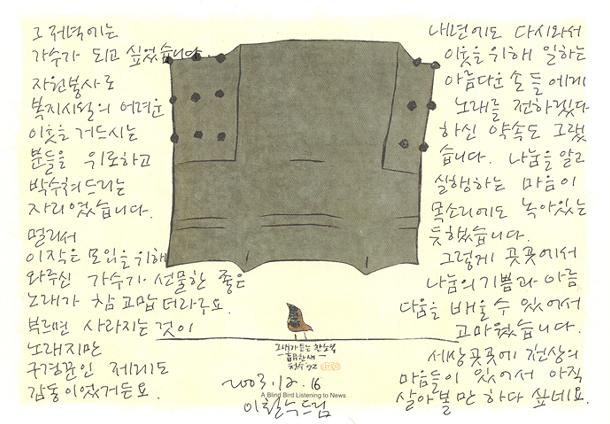 그 저녁에는
가수가 되고 싶었습니다.
자원봉사로
복지시설의 어려운
이웃을 거드시는
분들을 위로하고
박수쳐드리는
자리였습니다.
멀리서
이 작은 모임을 위해
와주신 가수가 선물한 좋은
노래가 참 고맙더라구요.
부르면 사라지는 것이
노래지만
구경꾼인 제게도
감동이었거든요.
내년에도 다시 와서
이웃을 위해 일하는
아름다운 손들에게
노래를 전하겠다
하신 약속도 그랬
습니다. 나눔을 알고
실행하는 마음이
목소리에도 녹아있는
듯했습니다.
그렇게 곳곳에서
나눔의 기쁨과 아름
다움을 배울 수 있어서
고마웠습니다.
세상 곳곳에 천상의
마음들이 있어서 아직
살아볼 만하다 싶네요.
눈먼 새
2003.12.16
A Blind Bird Listening to News
이철수 드림